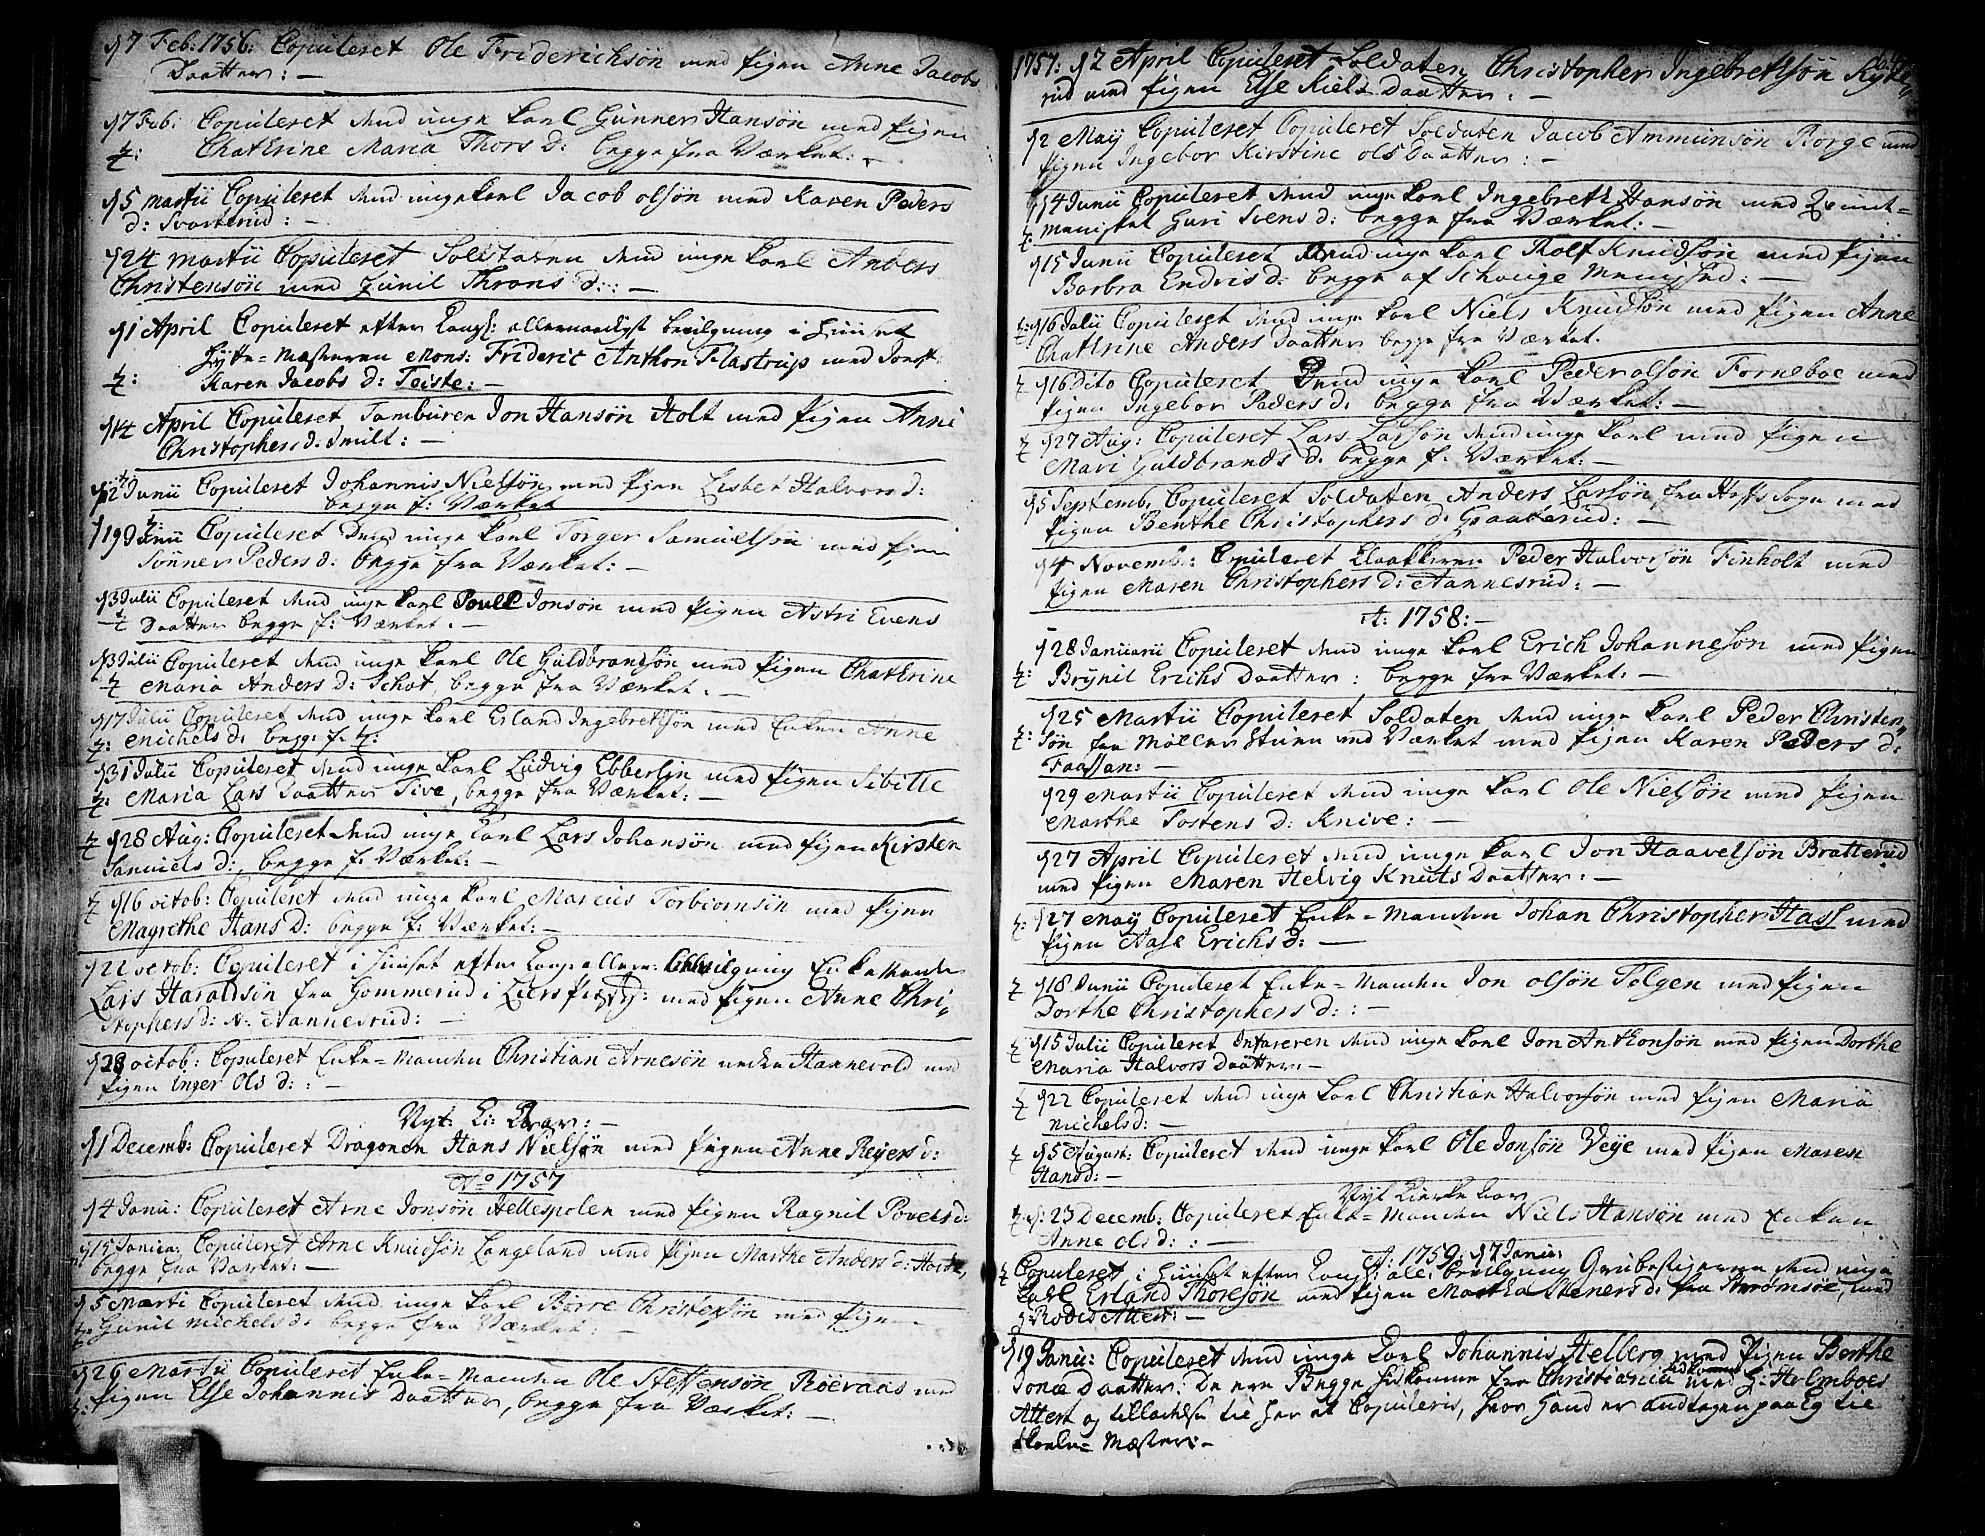 d 7 Feb: 1756: Copuleret Ole Friderichsøn med Pigen Anne Jacobs
Daatter: —
d 7 Feb: Copuleret Und unge Karl Gunner Hansøn med Pigen
Chathrine Maria Thors d: begge fra Værket: —
d 5 martii Copuleret Und unge Karl Jacob olsøn med Karen Peders
d: Svarterud: —
d 24 martii Copuleret Soldaten Und unge Karl Anders
Christensøn med Gunil Throns d:: —
d 1 April Copuleret efter Kongl: allernaadigst bevilgning i Huuset
Hytte-Mæsteren Mons: Frideric Anthon Flastrup med Jomf:
Karen Jacobs d: Toiste: —
d 14 April Copuleret Tamburen Jon Hansøn Holt med Pigen Anne
Christophers d: Smilt: —
d 12 Junii Copuleret Johannis Nielsøn med Pigen Lisbet Halvors d:
begge f: Værket
d 19 Junii Copuleret Und unge Karl Torger Samuelsøn med Pigen
Sønner Peders d: begge fra Værket: —
d 3 Julii Copuleret Und unge Karl Pouel Jonsøn med Pigen Astri Evens
Daatter begge f: Værket. —
d 13 Julii Copuleret Und unge Karl Ole Guldbrandsøn med Pigen Chathrine
Maria Anders d: Schot, begge fra Værket. —
d 17 Julii Copuleret Und unge Karl Erland Ingebretsøn med Enken Anne
Michels d: begge f. V:
d 31 Julii Copuleret Und unge Karl Ludvig Ebberlin med Pigen Sibille
Maria Lars Daatter Tive, begge fra Værket: —
d 28 Aug: Copuleret Und unge Karl Lars Johansøn med Pigen Kirsten
Samuels d:, begge f: Værket: —
d 16 octob: Copuleret Und unge Karl Marcus Torbiørnsøn med Pigen
Magrethe Hans d: begge f: Værket: —
d 22 octob: Copuleret i Huuset efter Kongl allern: bevilgning Enke Manden
Lars Haraldsøn fra Gommerud i Liers Præstg: med Pigen Anne Chri-
stophers d: N: Nannesrud: —
d 28 octob: Copuleret Enke-Manden Christian Arnesøn nedre Hannevold med
Pigen Inger Ols d: : —
Nyt: K: Aar: —
d 1 Decemb: Copuleret Dragonen Hans Nielsøn med Pigen Anne Reyers d:
Ao 1757
d 4 Janu: Copuleret Arne Jonsøn Hellespolen med Pigen Ragnil Povels d:
d 15 Janua: Copuleret Arne Knudsøn Langeland med Pigen Marthe Anders d:
begge fra Værket: —
d 5 Marti Copuleret Und unge Karl Børre Christensøn med Pigen
Gunil Michels d: begge fra Værket: —
d 26 Martii Copuleret Enke-Manden Ole Steffensøn Røevaas med
Pigen Else Johannis Daatter, begge fra Værket: —
1757: d 2 April Copuleret Soldaten Christopher Ingebretsøn Ryke
rud med Pigen Else Niels Daatter: —
d 2 May Copuleret Copuleret Soldaten Jacob Ammunsøn Borge med
Pigen Ingebor Kirstine ols Daatter: —
d 14 Junii Copuleret Und unge Karl Ingebreth Hansøn med Qvint-
menisket Guri Svens d: begge fra Værket: —
d 15 Junii Copuleret Und unge Karl Rolf Knudsøn med Pigen
Barbra Endris d: begge af Schouge Menighed: —
d 16 Julii Copuleret Und unge Karl Niels Knudsøn med Pigen Anne
Chathrine Anders Daatter begge fra Værket.
d 16 Dito Copuleret Und unge Karl Peder olsøn Forneboe med
Pigen Ingebor Peders d: begge fra Værket: —
d 27 Aug: Copuleret Lars Larsøn Und unge Karl med Pigen
Mari Guldbrands d: begge f: Værket: —
d 5 Septemb, Copuleret Soldaten Anders Larsøn fra Hofs Sogn med
Pigen Benthe Christophers d: Graatterud: —
d 4 Novemb: Copuleret Peder Halvorsøn Finholt med
Pigen Maren Christophers d: Aannesrud: —
A: 1758: —
d 28 Januarii Copuleret Und unge Karl Erich Johannesøn med Pigen
Brynil Erichs Daatter: begge fra Værket: —
d 25 Martii Copuleret Soldaten Und unge Karl Peder Christen-
søn fra Møllerstuen ved Værket med Pigen Karen Peders d:
Faassan: —
d 29 Martii Copuleret Und unge Karl Ole Nielsøn med Pigen
Marthe Tostens d: Knive: —
d 27 April Copuleret Und unge Karl Jon Haavelsøn Bratterud
med Pigen Maren Helvig Knuts Daatter: —
d 27 May Copuleret Enke-Manden Johan Christopher Hass med
Pigen Aase Erichs d: —
d 18 Junii Copuleret Enke-Manden Jon olsøn Tolgen med Pigen
Dorthe Christophers d: : —
d 15 Julii Copuleret Und unge Karl Jon Anthonsøn med Pigen Dorthe
Maria Halvors Daatter: —
d 22 Copuleret Und unge Karl Christian Halvorsøn med Pigen Maria
Michels d: —
d 5 August: Copuleret Und unge Karl Ole Jonsøn Veye med Pigen Maren
Hans d: —
Nyt Kierke Aar
d: 23 Decemb: Copuleret Enke-Manden Niels Hansøn med Enken
Anne Ols d: : —
A: 1759: d 7 Janu:
Copuleret i Huuset efter Kongl: alle: bevilgning Grubestigeren Und unge
Karl Erland Thoresøn med Pigen Martha Steners d: fra Strømsøe, med
H: Rodes Attest: —
d 19 Janu: Copuleret Und unge Karl Johannis Helberg med Pigen Berthe
Jonæ Daatter. De ere Begge hidkomne fra Christiania med H: Holmboes
Attest og tilladelse til her at Copuleris, hvor hand er andtagen paa Eg til
Skole-Mæster: —